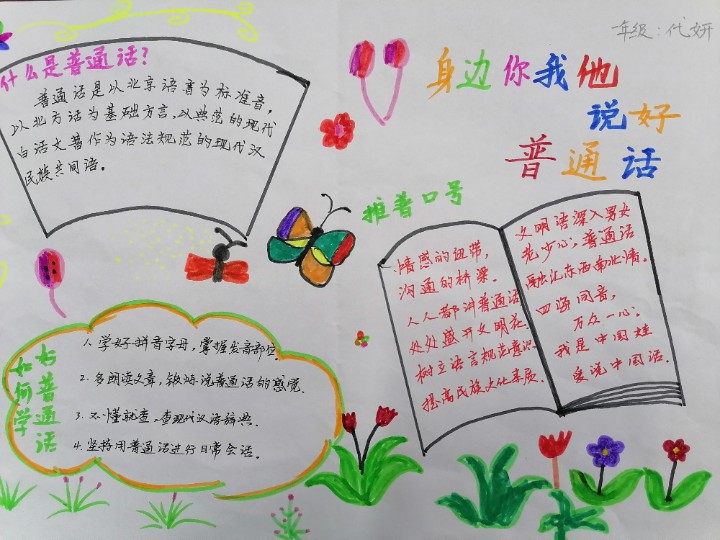 年级：代妍
什么是普通话？
普通话是以北京语音为标准音，
以北方话为基础方言，以典范的现代
白话文著作为语法规范的现代汉
民族共同语。
身边你我他
说好
普通话
推普口号
情感的纽带，
沟通的桥梁。
人人都讲普通话
处处盛开文明花
树立语言规范意识
提高民族文化素质。
文明语深入男女
老少心，普通话
融汇东西南北情。
四海同音，
万众一心；
我是中国娃
爱说中国话。
如何学
好普通话
1. 学好拼音字母，掌握发音部位。
2. 多朗读文章，锻炼说普通话的感觉。
3. 不懂就查，查现代汉语辞典。
4. 坚持用普通话进行日常会话。